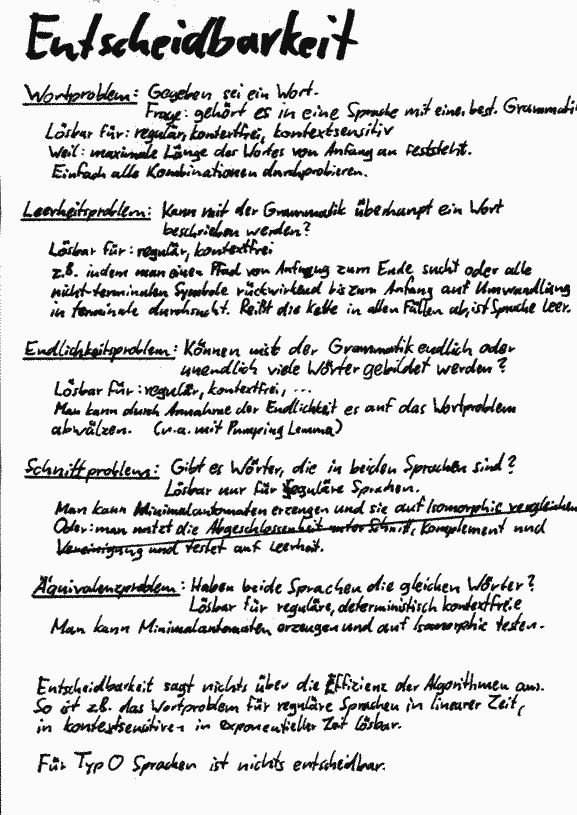 Entscheidbarkeit
Wortproblem: Gegeben sei ein Wort.
Frage: gehört es in eine Sprache mit einer best. Grammati
Lösbar für: regulär, kontextfrei, kontextsensitiv
Weil: maximale Länge des Wortes von Anfang an feststeht.
Einfach alle Kombinationen durchprobieren.
Leerheitsproblem: Kann mit der Grammatik überhaupt ein Wort
beschrieben werden?
Lösbar für: regulär, kontextfrei
z.B. indem man einen Pfad von Anfang zum Ende sucht oder alle
nicht-terminalen Symbole rückwirkend bis zum Anfang auf Umwandlung
in terminale durchsucht. Reißt die Kette in allen Fällen ab, ist Sprache leer.
Endlichkeitsproblem: Können mit der Grammatik endlich oder
unendlich viele Wörter gebildet werden?
Lösbar für: regulär, kontextfrei, ...
Man kann durch Annahme der Endlichkeit es auf das Wortproblem
abwälzen. (v.a. mit Pumping Lemma)
Schnittproblem: Gibt es Wörter, die in beiden Sprachen sind?
Lösbar nur für reguläre Sprachen.
Man kann Minimalautomaten erzeugen und sie auf Isomorphie vergleichen
Oder: man nutzt die Abgeschlossenheit unter Schnitt, Komplement und
Vereinigung und testet auf Leerheit.
Äquivalenzproblem: Haben beide Sprachen die gleichen Wörter?
Lösbar für reguläre, deterministisch kontextfreie
Man kann Minimalautomaten erzeugen und auf Isomorphie testen.
Entscheidbarkeit sagt nichts über die Effizienz der Algorithmen aus.
So ist z.B. das Wortproblem für reguläre Sprachen in linearer Zeit,
in kontextsensitiven in exponentieller Zeit lösbar.
Für Typ 0 Sprachen ist nichts entscheidbar.